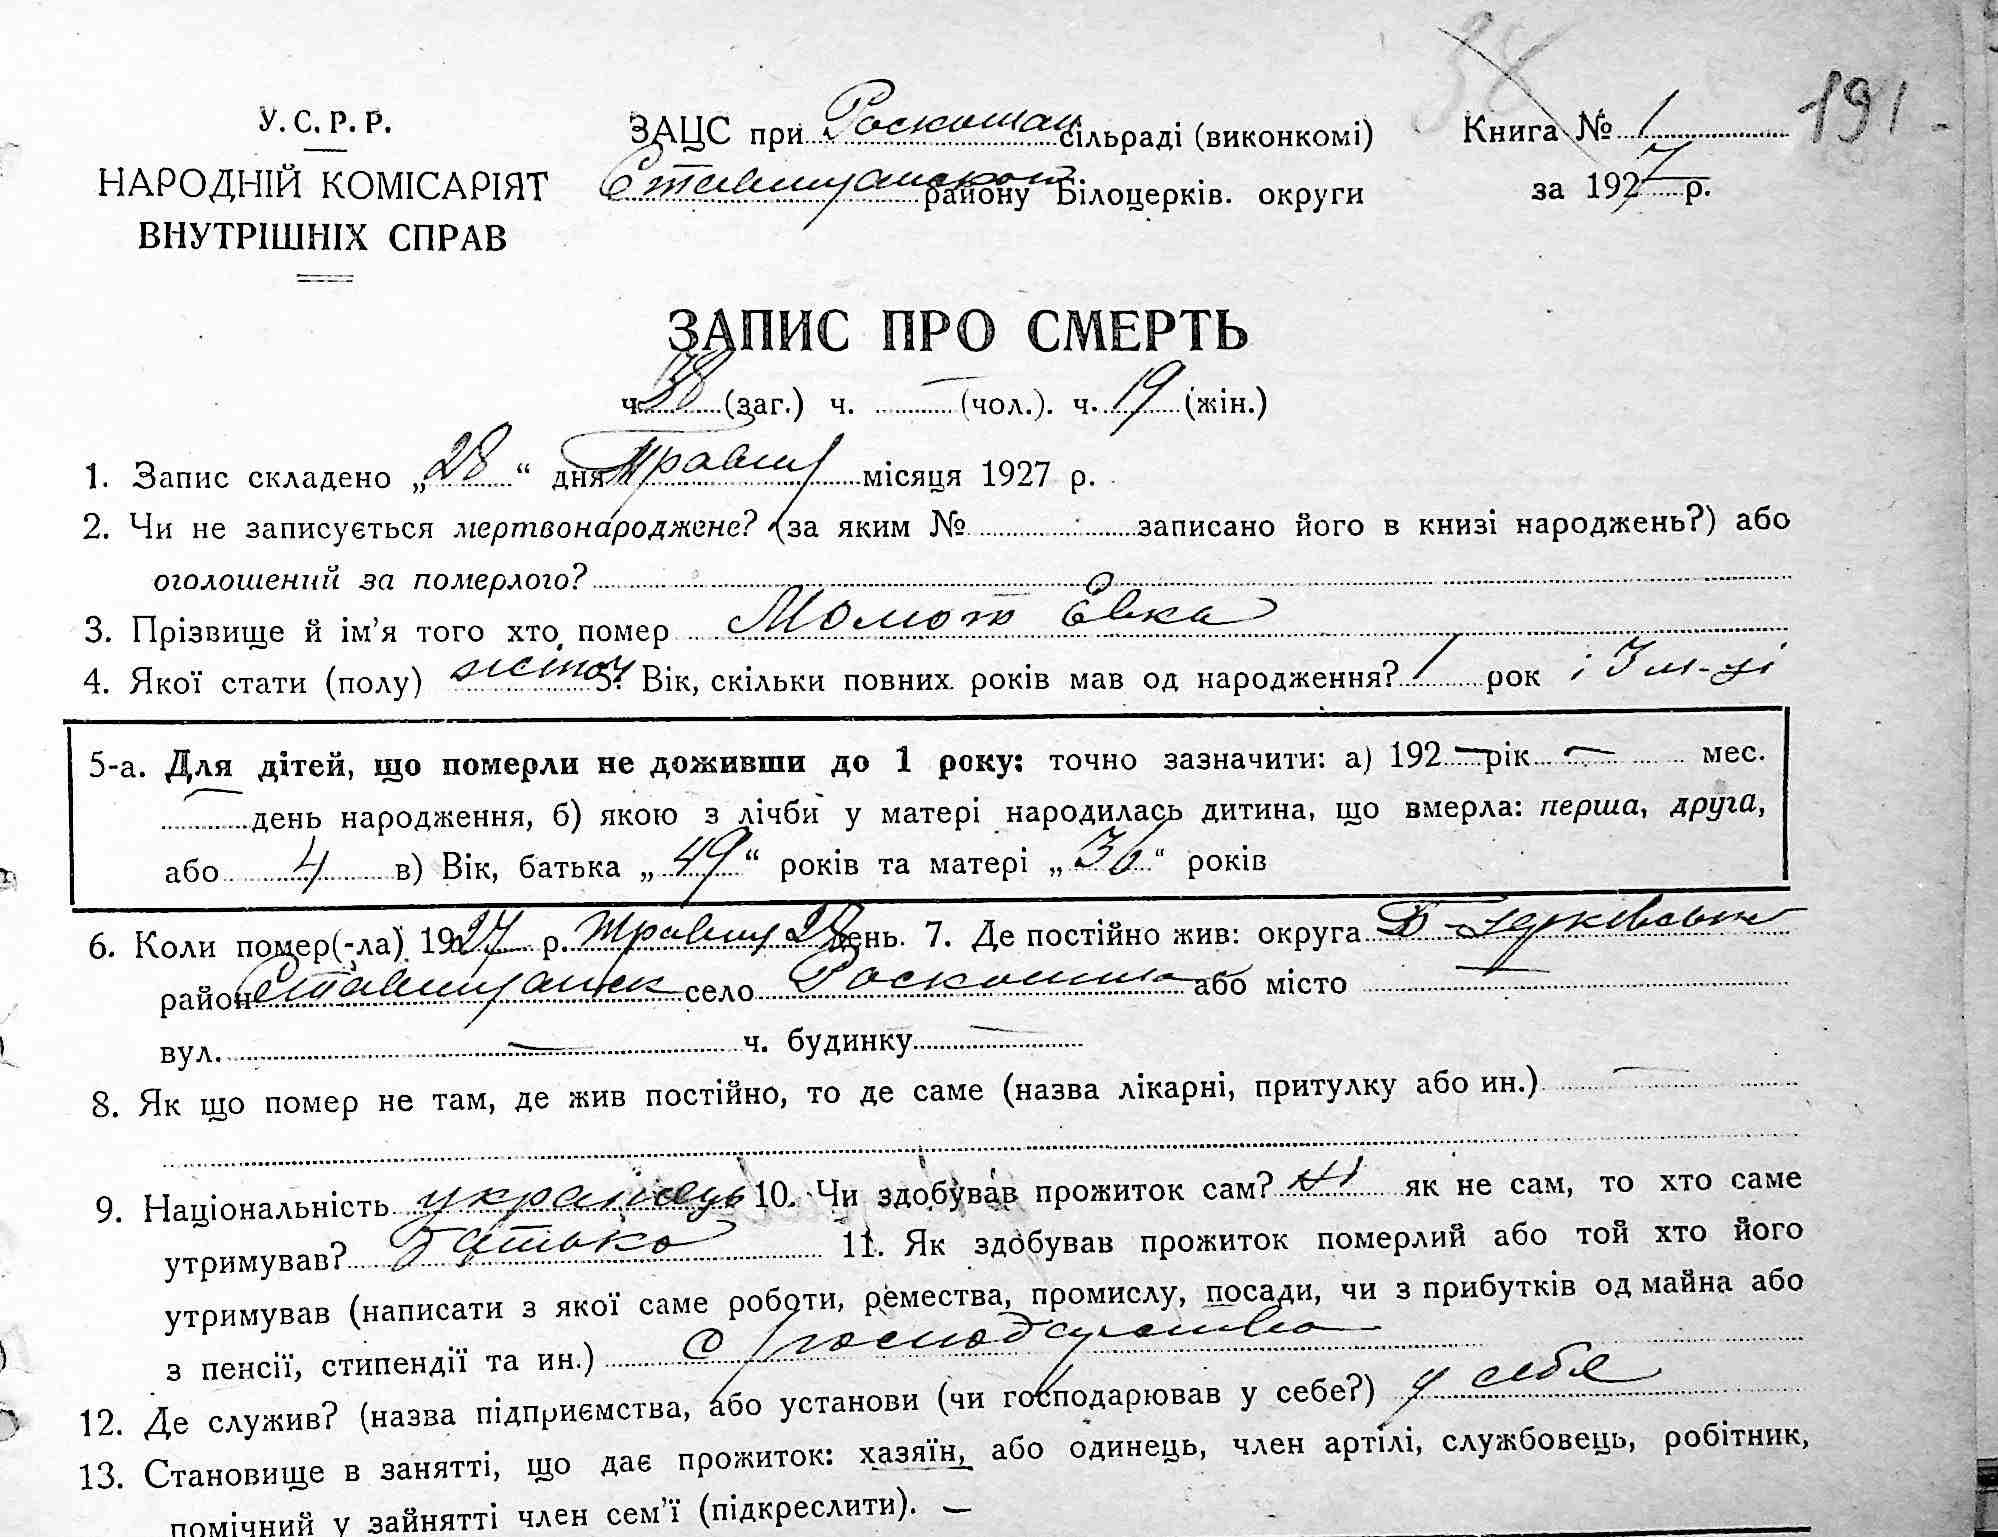 38
191
У. С. Р. Р.
НАРОДНІЙ КОМІСАРІЯТ
ВНУТРІШНІХ СПРАВ
ЗАЦС при Роскошан сільраді (виконкомі)
Ставищанской району Білоцерків. округи
Книга № 1
за 1927 р.
ЗАПИС ПРО СМЕРТЬ
ч. 38 (заг.) ч. — (чол.). ч. 19 (жін.)
1. Запис складено „28“ дня Травня місяця 1927 р.
2. Чи не записується мертвонароджене? (за яким № записано його в книзі народжень?) або
оголошений за померлого?
3. Прізвище й ім’я того хто помер Момот Євка
4. Якої стати (полу) жіноч 5. Вік, скільки повних років мав од народження? 1 рок і 3 м-ці
5-а. Для дітей, що померли не доживши до 1 року: точно зазначити: а) 192 — рік — мес.
— день народження, б) якою з лічби у матері народилась дитина, що вмерла: перша, друга,
або 4 в) Вік, батька „49“ років та матері „36“ років
6. Коли помер(-ла) 1927 р. Травня 28 день. 7. Де постійно жив: округа Б-Церківськ
район Ставищанск село Роскошна або місто —
вул. — ч. будинку —
8. Як що помер не там, де жив постійно, то де саме (назва лікарні, притулку або ин.) —
9. Національність українець 10. Чи здобував прожиток сам? ні як не сам, то хто саме
утримував? батько 11. Як здобував прожиток померлий або той хто його
утримував (написати з якої саме роботи, ремества, промислу, посади, чи з прибутків од майна або
з пенсії, стипендії та ин.) с господарства
12. Де служив? (назва підприємства, або установи (чи господарював у себе?) у себя
13. Становище в занятті, що дає прожиток: хазяїн, або одинець, член артілі, службовець, робітник,
помічний у зайнятті член сем’ї (підкреслити). —